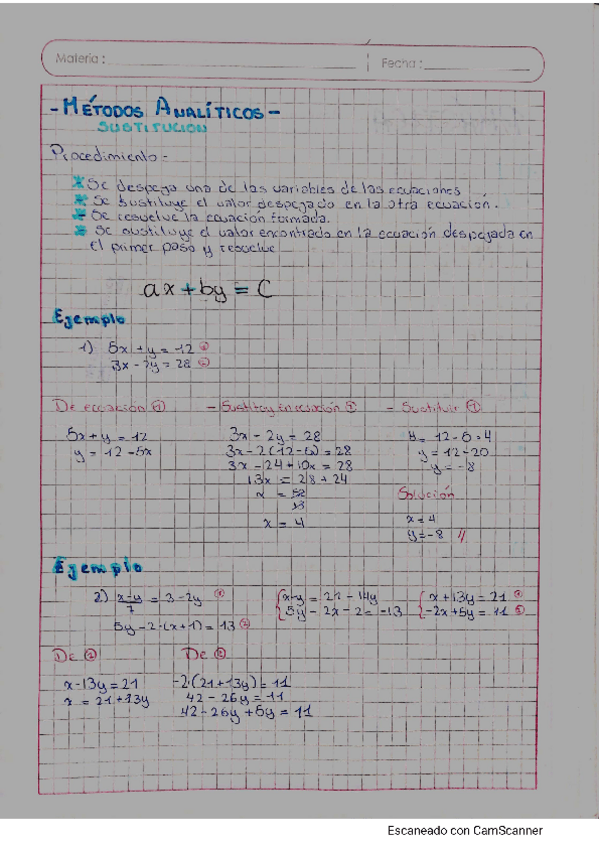 Materia :
Fecha :
- MÉTODOS ANALÍTICOS -
SUSTITUCION
Procedimiento -
* Se despeja una de las variables de las ecuaciones
* Se sustituye el valor despejado en la otra ecuación.
* Se resuelve la ecuación formada.
* Se sustituye el valor encontrado en la ecuación despejada en
el primer paso y resuelve
ax + by = C
Ejemplo
1) 5x + y = 12 ①
3x - 2y = 28 ②
De ecuación ① - Sustituir ①
5x + y = 12 3x - 2y = 28
y = 12 - 5x y = 12 - 20
3x - 24 + 10x = 28 y = -8
13x = 28 + 24 Solución
x = 4 x = 4
y = -8 //
Ejemplo
2) x-y/7 = 3 - 2y ① x-y = 21 - 14y x + 13y = 21 ①
5y - 2·(x+1) = 13 ② -2x + 5y = 11 ②
De ① De ②
x - 13y = 21 -2·(21+13y) = 11
x = 21 + 13y 42 - 26y = 11
42 - 26y + 5y = 11
Escaneado con CamScanner